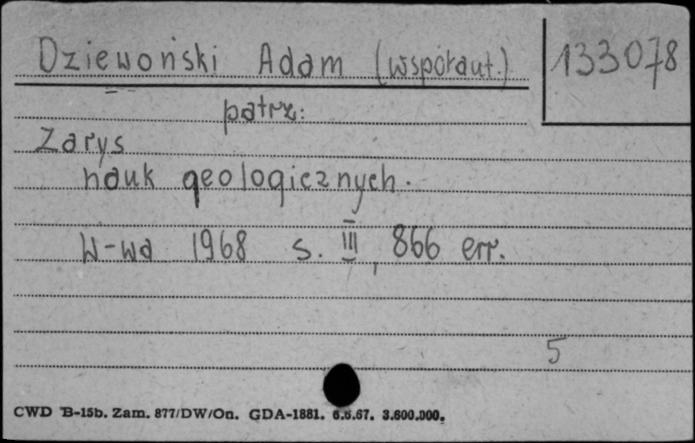 Dziewoński Adam (współaut.)
133078
patrz:
Zarys
nauk geologicznych.
W-wa 1968 s. III, 866 err.
5
CWD B-15b. Zam. 877/DW/On. GDA-1881. 6.6.67. 3.600.000.